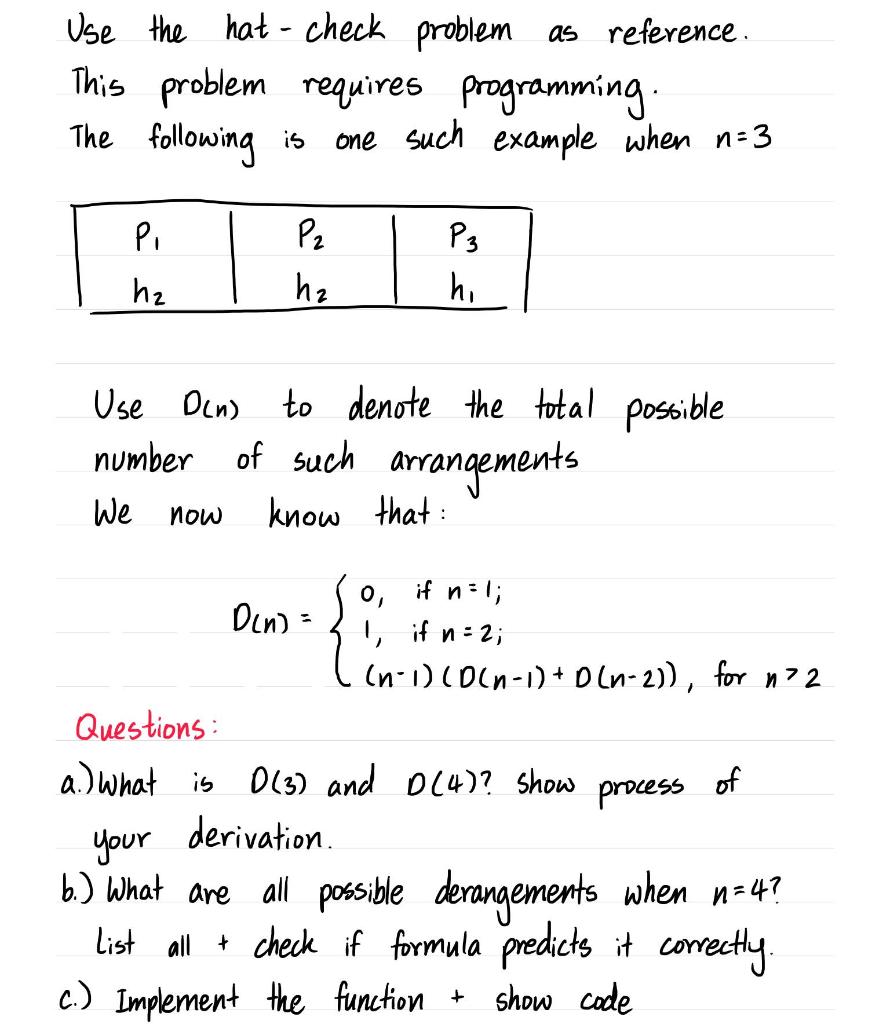 Use the hat - check problem as reference.
This problem requires programming.
The following is one such example when n=3
P₁ P₂ P₃
h₂ h₂ h₁
Use D(n) to denote the total possible
number of such arrangements
We now know that :
D(n) = { 0, if n=1;
1, if n=2;
(n-1)(D(n-1)+D(n-2)), for n>2
Questions:
a.) What is D(3) and D(4)? Show process of
your derivation.
b.) What are all possible derangements when n=4?
List all + check if formula predicts it correctly.
c.) Implement the function + show code